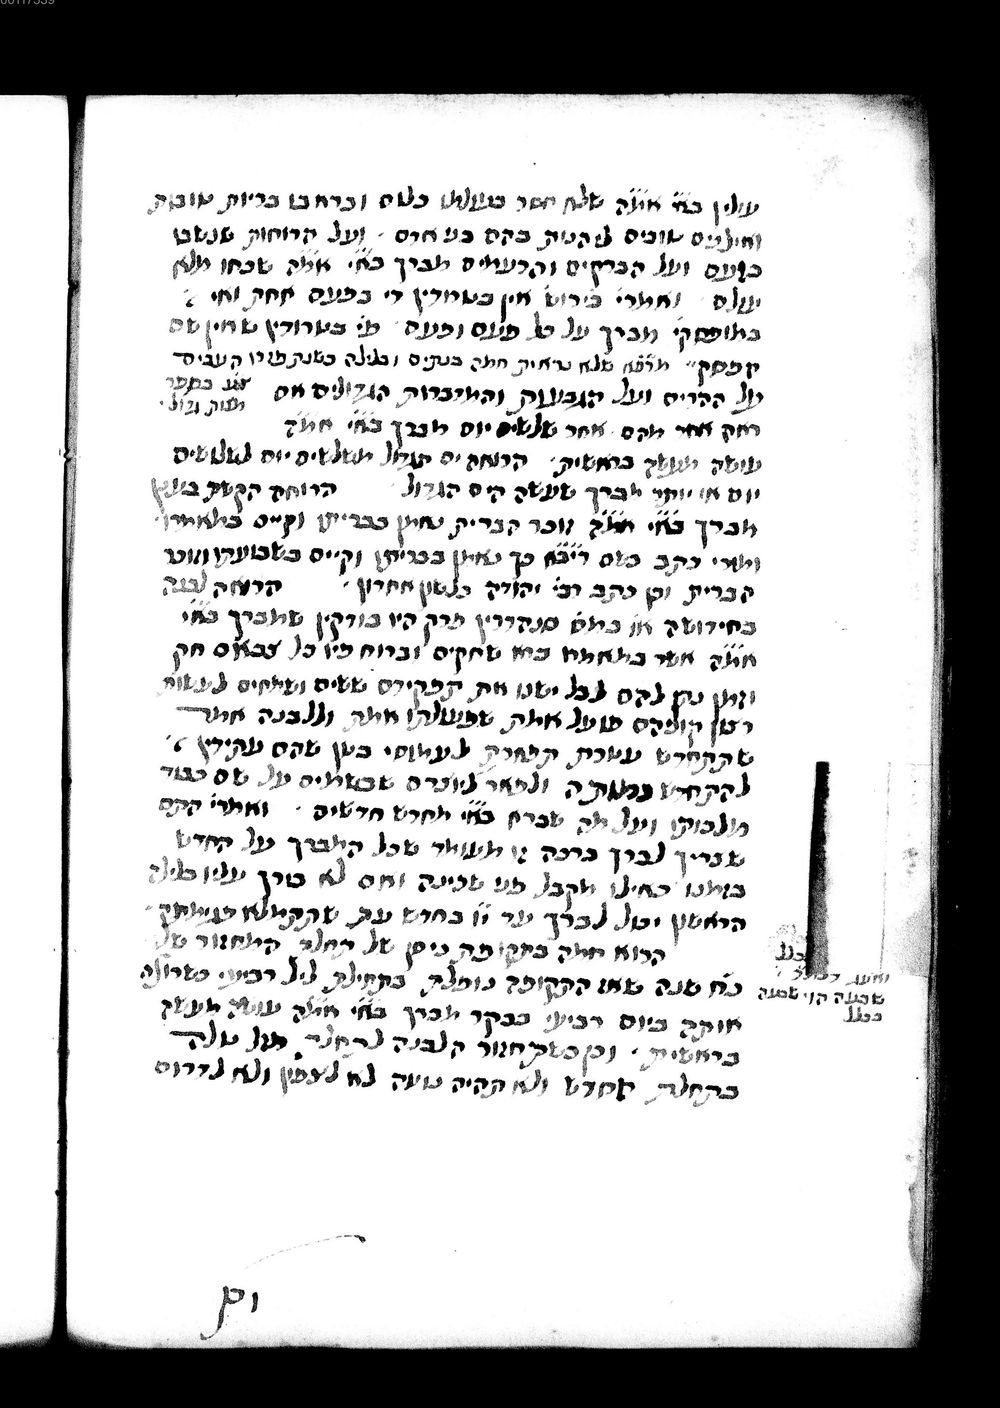 עולין בא״י אמ״ה שלא חסר בעולמו כלום וברא בו בריות טובות
ואילנים טובים ליהנות בהם בני אדם · ועל הרוחות שנשבו
בזעם ועל הברקים והרעמים מברך בא״י אמ״ה שכחו מלא
עולם · ואמרי׳ בירוש׳ אין בטורדין די בפעם אחת ואי
במופסקי׳ מברך על כל פעם ופעם · פי׳ בטרודין שאין שם
הפסק שלא נראית חמה בנתים ובלילה כשנתפזרו העבים
על ההרים ועל הגבעות והמדברות הגדולים אם
ראה אותר מהם אחר שלשים יום מברך בא״י אמ״ה
עושה מעשה בראשית · הרואה ים הגדול משלשים יום לשלושים
יום או יותר מברך שעשה הים הגדול הרואה הקשת בענן
מברך בא״י אמ״ה זוכר הברית נאמן בבריתו וקיים במאמרו ·
ומורי כתב בשם ריב״א כך נאמן בבריתו וקיים בשבועתו וזוכר
הברית וכן כתב רבי׳ יהודה בלשון אחרון · הרואה לבנה
בחידושה או׳ בתים סנהדרין פרק היו בודקין שמברך בא״י
אמ״ה אשר במאמרו ברא שחקים וברוח פיו כל צבאם חק
וזמן נתן להם לבל ישנו את תפקידם ששים ושמחים לעשות
רצון קוניהם פועל אמת שפעולתו אמת וללבנה אמר
שתתחדש עטרת תפארת לעמוסי בטן שהם עתידין
להתחדש כמותה ולפאר ליוצרם שבשמים על שם כבוד
מלכותו ועל מה שברא בא״י מחדש חדשים · ואמרי׳ התם
שצריך לברך ברכה זו מעומד שכל המברך על החדש
בזמנו כאילו מקבל פני שכינה ואם לא בורך עליו בלילה
הראשון יכול לברך עד י״ו בחדש עד שתתמלא פגימתה ·
הרוא חמה בתקופת ניסן של תחלת המחזור של
כ״ח שנה שאז התקופה נופלת בתחילת ליל רביעי כשרואה
אותה ביום רביעי בבקר מברך בא״י אמ״ה עושה מעשה
בראשית · וכן כשתחזור הלבנה לתחלת מזל טלה
בתחלת החדש ולא תהיה נוטה לא לצפון ולא לדרום
שבעה הוי שבעה
בכלל
וכן